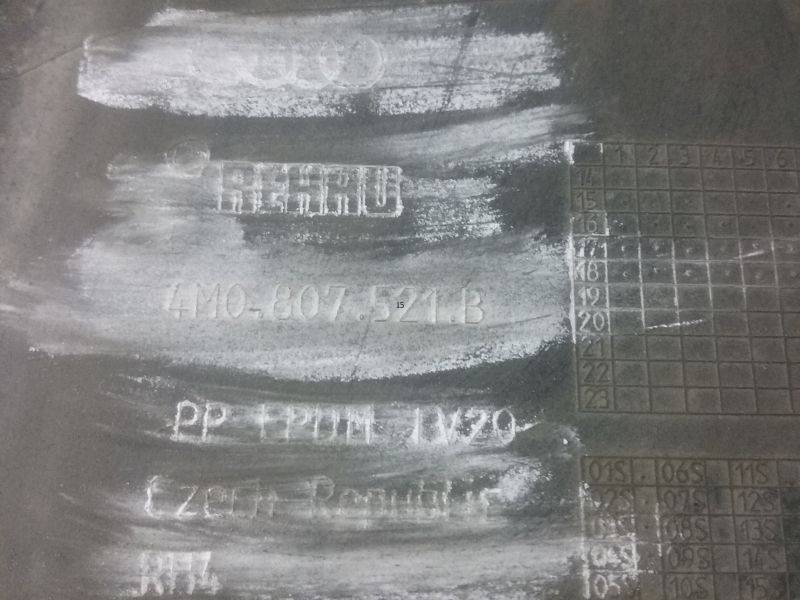 REHAU
4M0.807.521.B
15
PP EPDM TV20
Czech Republic
RM4
1 2 3 4 5 6
14
15
16
17
18
19
20
21
22
23
01S 06S 11S
02S 07S 12S
03S 08S 13S
04S 09S 14S
05S 10S 15